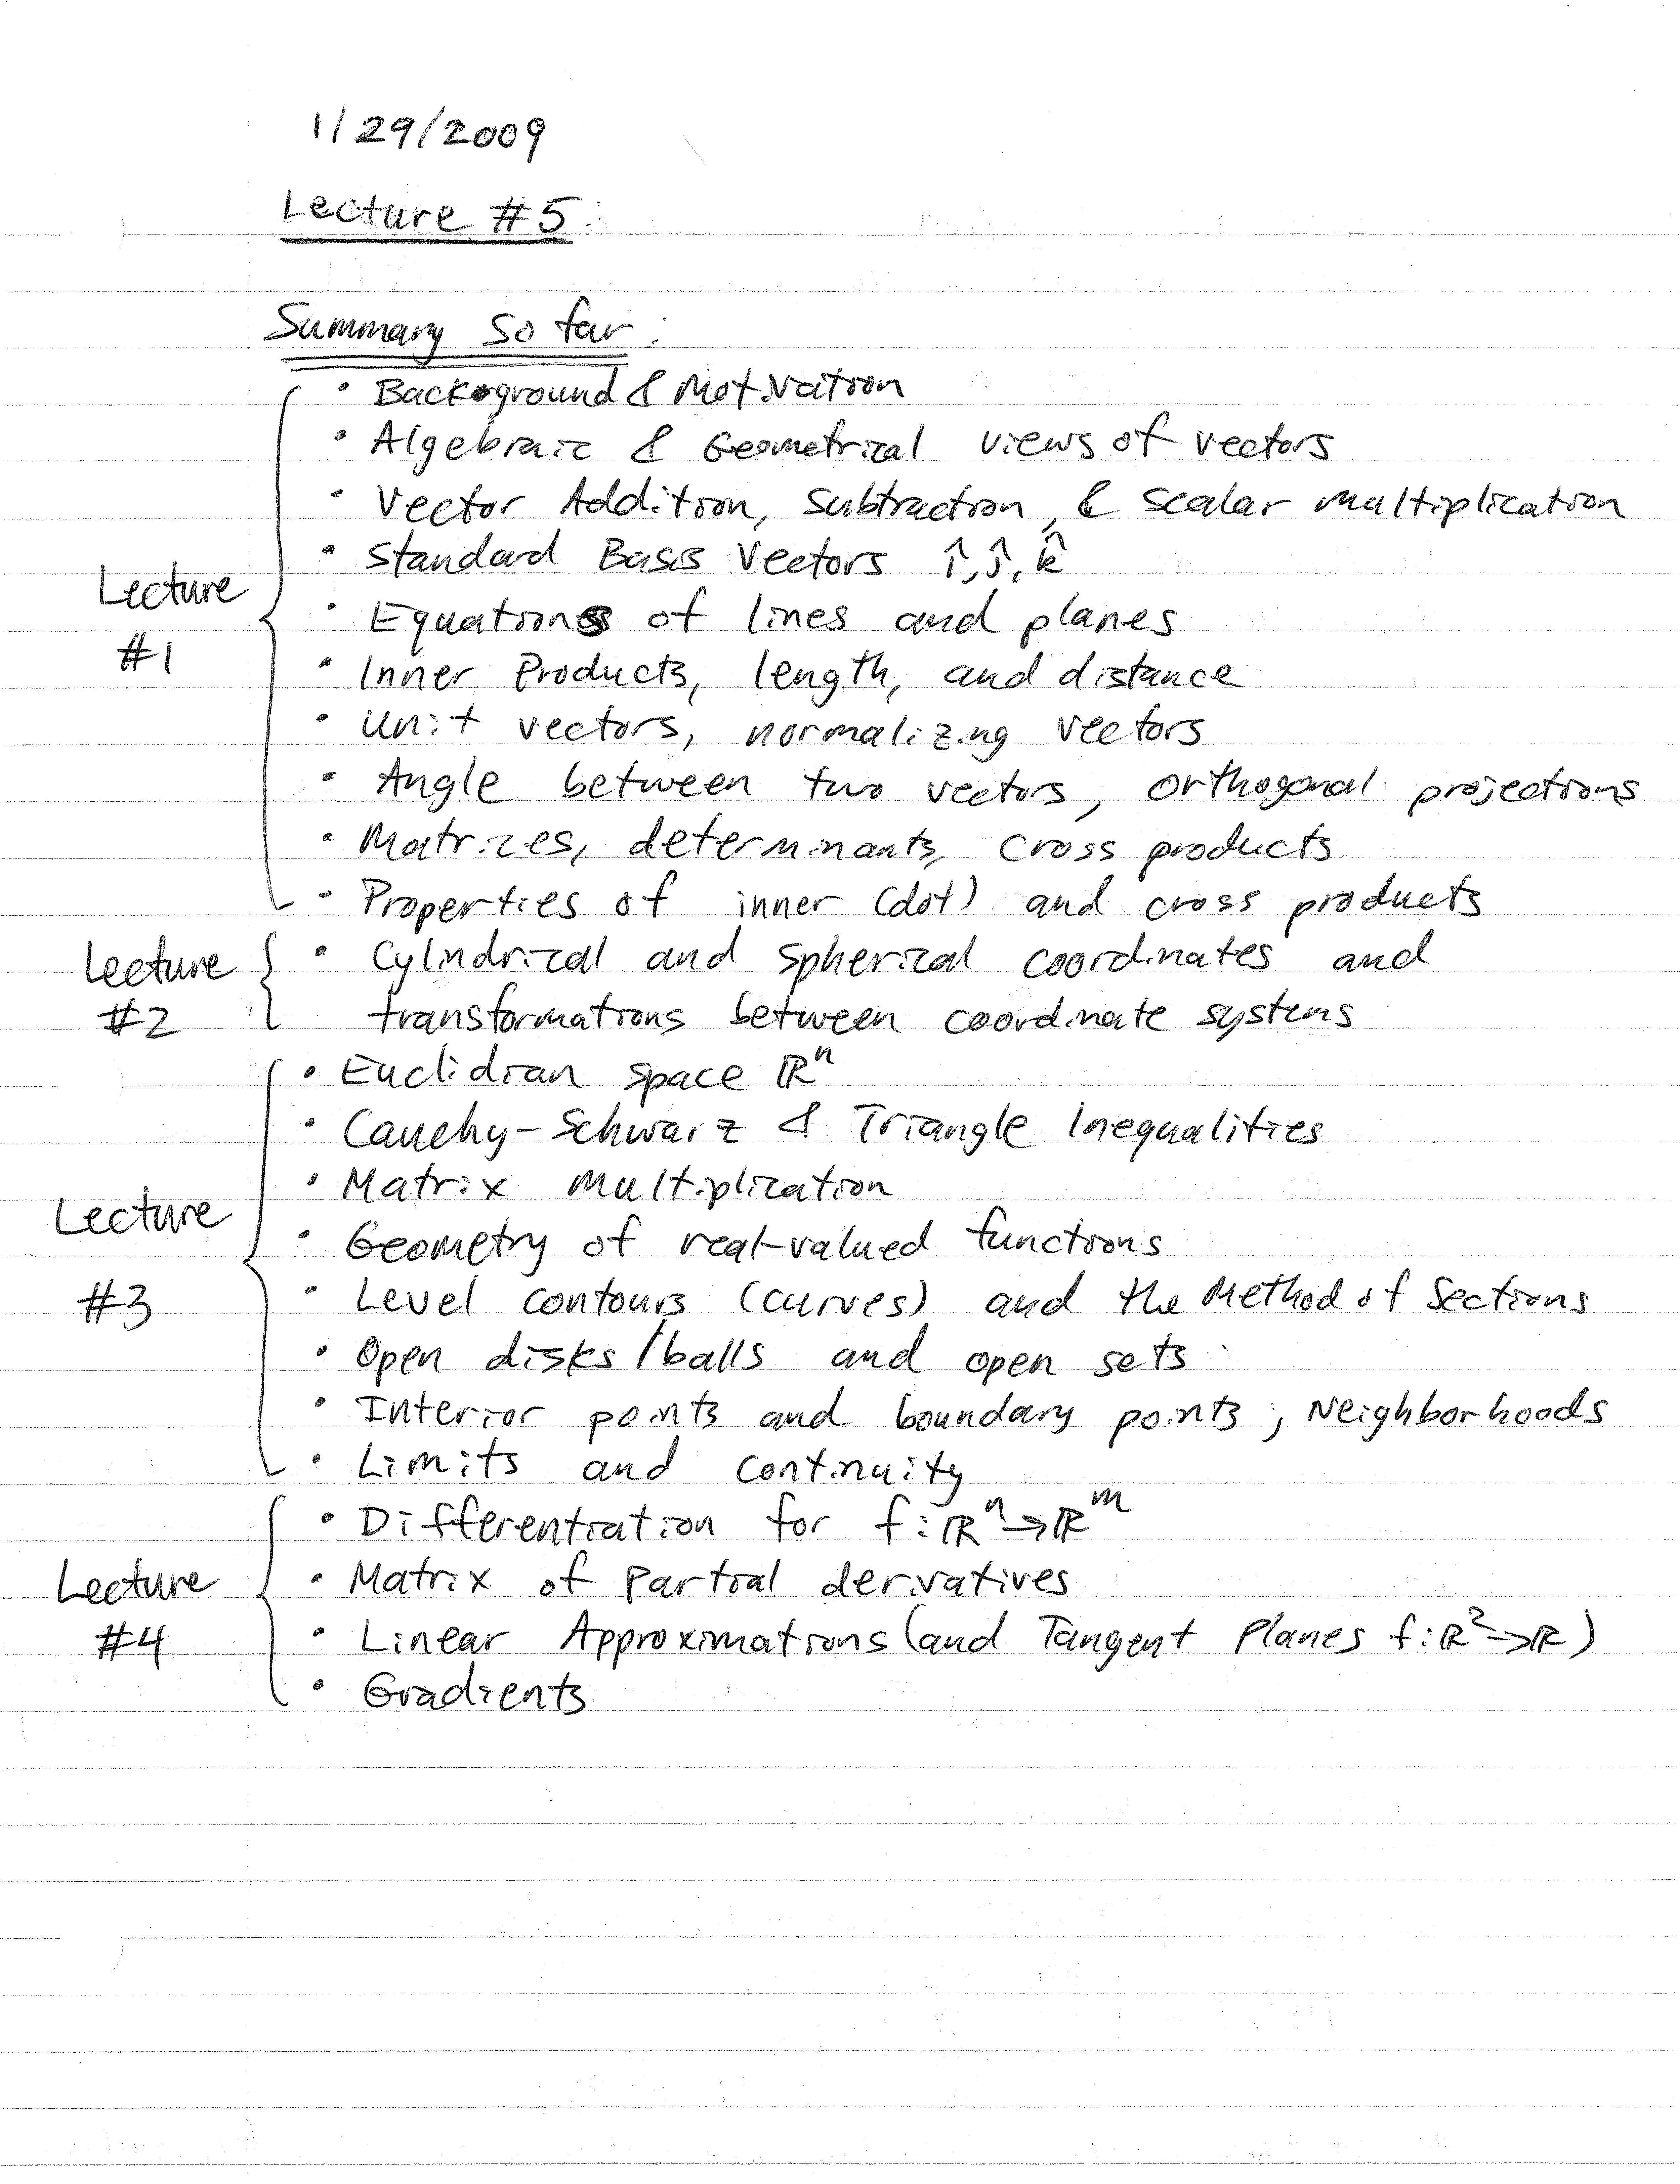 1/29/2009
Lecture #5:
Summary so far:
• Background & Motivation
• Algebraic & Geometrical views of vectors
• Vector Addition, Subtraction, & scalar multiplication
• Standard Basis Vectors î, ĵ, k̂
Lecture #1
• Equations of lines and planes
• Inner Products, length, and distance
• Unit vectors, normalizing vectors
• Angle between two vectors, orthogonal projections
• Matrices, determinants, cross products
• Properties of inner (dot) and cross products
Lecture #2
• Cylindrical and Spherical coordinates and
transformations between coordinate systems
• Euclidian space ℝⁿ
• Cauchy-Schwarz & Triangle Inequalities
• Matrix Multiplication
Lecture #3
• Geometry of real-valued functions
• Level contours (curves) and the Method of Sections
• Open disks/balls and open sets
• Interior points and boundary points, Neighborhoods
• Limits and continuity
• Differentiation for f: ℝⁿ→ℝᵐ
Lecture #4
• Matrix of Partial derivatives
• Linear Approximations (and Tangent Planes f: ℝ²→ℝ)
• Gradients